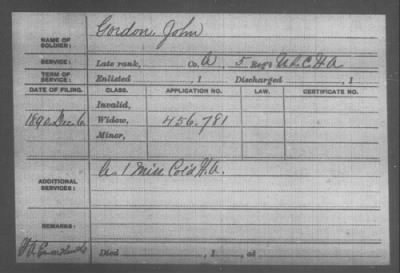 NAME OF SOLDIER: Gordon, John
SERVICE: Late rank, Co. A, 5 Reg't U.S.C.H.A.
TERM OF SERVICE: Enlisted , 1 Discharged , 1
DATE OF FILING. CLASS. APPLICATION NO. LAW. CERTIFICATE NO.
Invalid,
1890 Dec 6 Widow, 456.781
Minor,
ADDITIONAL SERVICES: A. 1 Miss Col'd H.A.
REMARKS:
Died , 1 , at